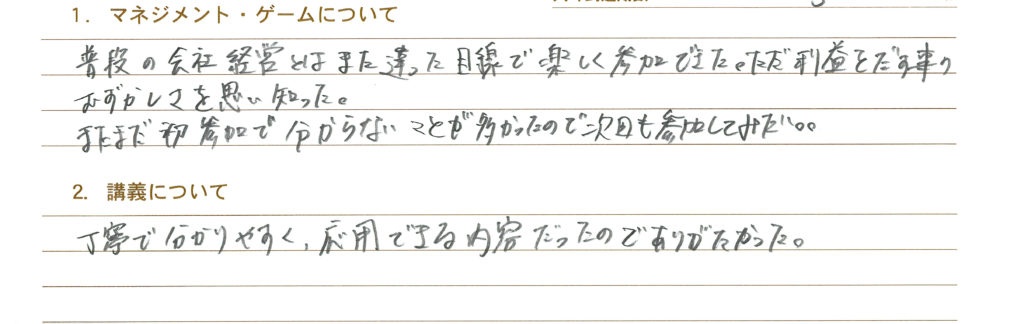 1. マネジメント・ゲームについて
普段の会社経営とはまた違った目線で楽しく参加できた。ただ利益をだす事の
むずかしさを思い知った。
まだまだ初参加で分からないことが多かったので次回も参加してみたい。
2. 講義について
丁寧で分かりやすく、応用できる内容だったのでありがたかった。